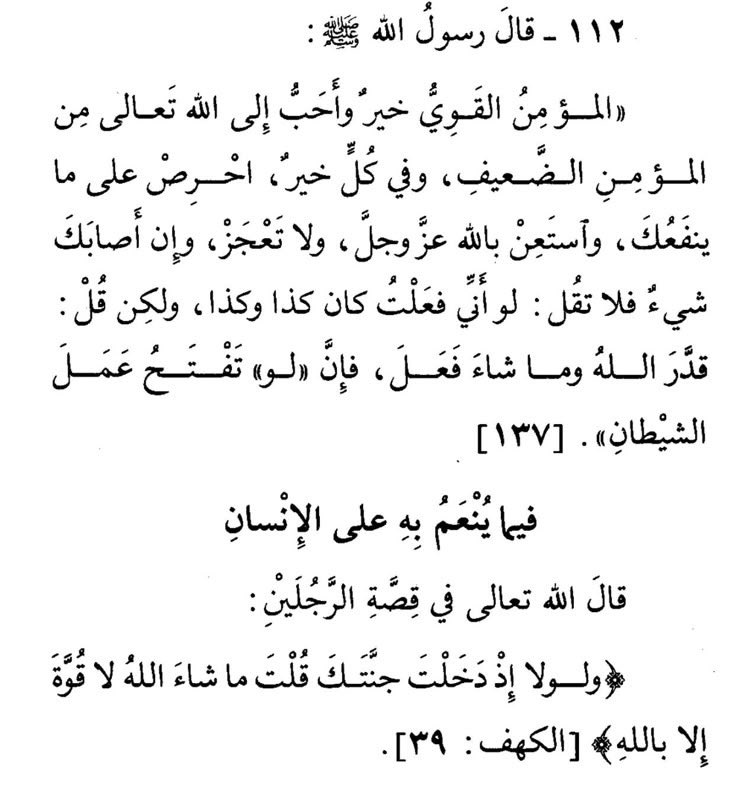 ١١٢ - قالَ رسولُ الله ﷺ :
«المـؤمِنُ القَـوِيُّ خيرٌ وأَحَبُّ إِلى الله تَعـالى مِن
المـؤمِـنِ الـضَّـعيفِ، وفي كُلٍّ خيرٌ، احْـرِصْ على ما
ينفَعُكَ، وٱستَعِنْ بالله عزَّ وجلَّ، ولا تَعْجَزْ، وإِن أَصابَكَ
شيءٌ فلا تقُل: لو أَنِّي فعَلْتُ كان كذا وكذا، ولكِن قُلْ:
قدَّرَ اللـهُ ومـا شاءَ فَعَـلَ، فإِنَّ «لـو» تَفْـتَـحُ عَمَـلَ
الشيْطانِ». [١٣٧]
فيما يُنْعَمُ بِهِ على الإِنْسانِ
قالَ الله تعالى في قِصَّةِ الرَّجُلَيْنِ:
﴿ولـولا إِذْ دَخَلْتَ جنَّتَـكَ قُلْتَ ما شاءَ اللهُ لا قُوَّةَ
إِلا باللهِ﴾ [الكهف: ٣٩].